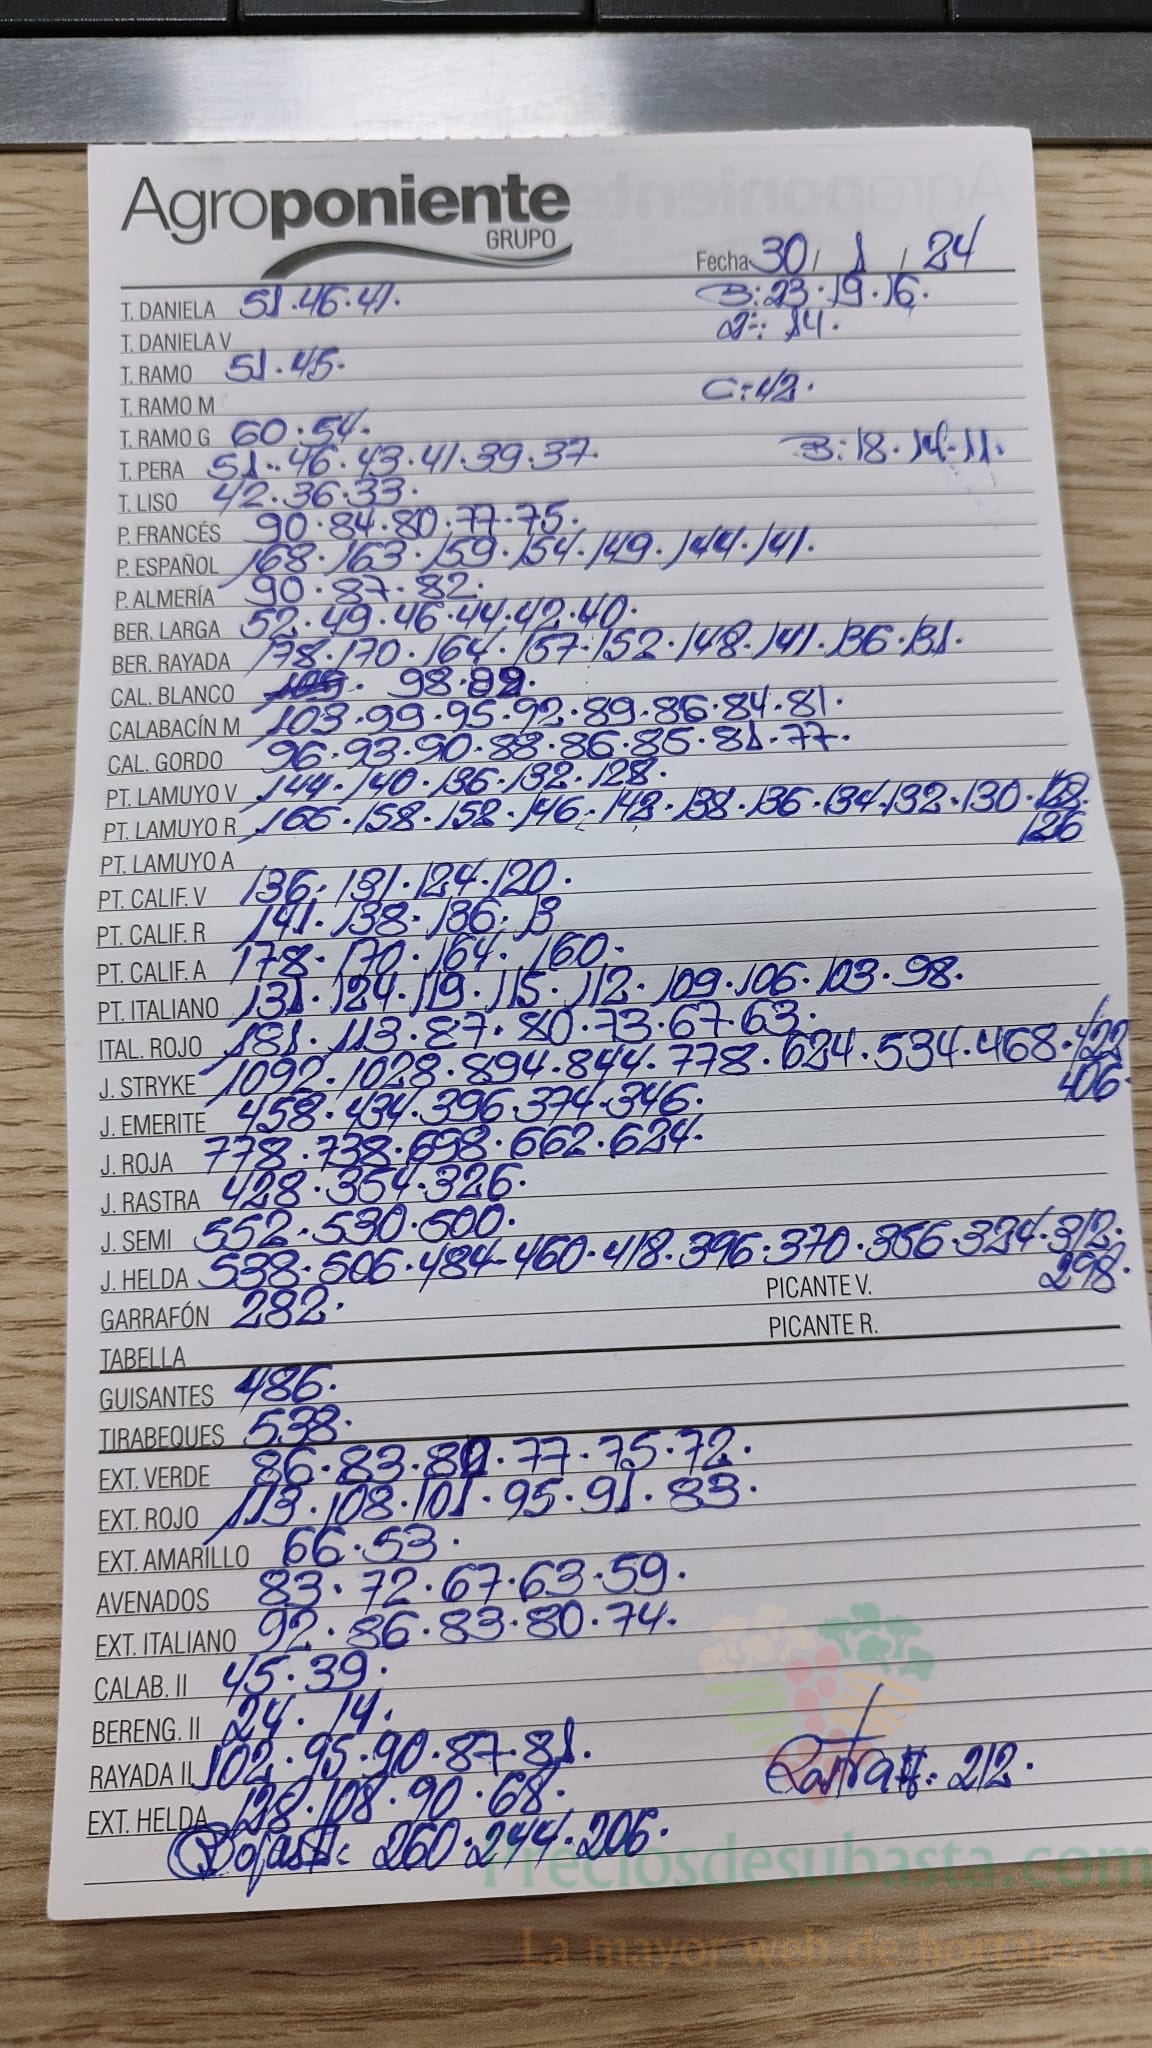 Agroponiente
GRUPO
Fecha 30 / 1 / 24
T. DANIELA 51.46.41. B:23.19.16.
T. DANIELA V 2ª: 14.
T. RAMO 51.45.
T. RAMO M C:42.
T. RAMO G 60.54.
T. PERA 51.46.43.41.39.37. B:18.14.11.
T. LISO 42.36.33.
P. FRANCÉS 90.84.80.77.75.
P. ESPAÑOL 168.163.159.154.149.144.141.
P. ALMERÍA 90.87.82.
BER. LARGA 52.49.46.44.42.40.
BER. RAYADA 178.170.164.157.152.148.141.136.131.
CAL. BLANCO 98.92.
CALABACÍN M 103.99.95.92.89.86.84.81.
CAL. GORDO 96.93.90.88.86.85.81.77.
PT. LAMUYO V 144.140.136.132.128.
PT. LAMUYO R 166.158.152.146.142.138.136.134.132.130.128.
126
PT. LAMUYO A
PT. CALIF. V 136.131.124.120.
PT. CALIF. R 141.138.136.
PT. CALIF. A 178.170.164.160.
PT. ITALIANO 131.124.119.115.112.109.106.103.98.
ITAL. ROJO 181.113.87.80.73.67.63.
J. STRYKE 1092.1028.894.844.778.624.534.468.422
406.
J. EMERITE 458.434.396.374.346.
J. ROJA 778.738.698.662.624.
J. RASTRA 428.354.326.
J. SEMI 552.530.500.
J. HELDA 538.506.484.460.418.396.370.356.324.312.
298.
GARRAFÓN 282. PICANTE V.
TABELLA PICANTE R.
GUISANTES 486.
TIRABEQUES 538.
EXT. VERDE 86.83.80.77.75.72.
EXT. ROJO 113.108.101.95.91.83.
EXT. AMARILLO 66.53.
AVENADOS 83.72.67.63.59.
EXT. ITALIANO 92.86.83.80.74.
CALAB. II 45.39.
BERENG. II 24.14.
RAYADA II 102.95.90.87.81.
Rastra II: 212.
EXT. HELDA 128.108.90.68.
Rojas II: 260.244.206.
Preciosdesubasta.com
La mayor web de hortalizas